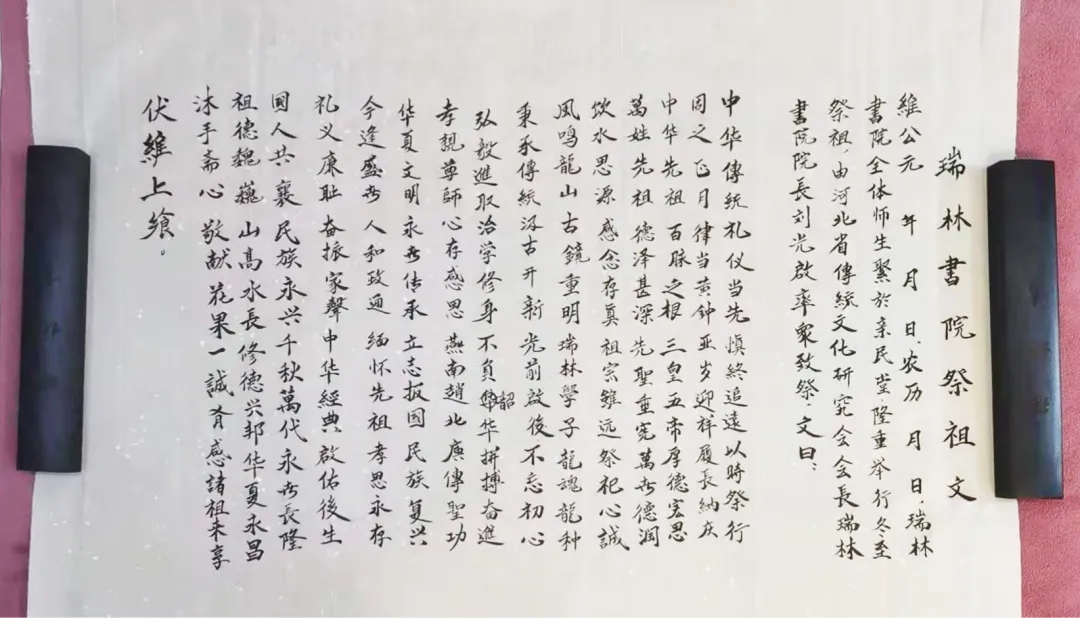 瑞林書院祭祖文
維公元 年 月 日，农历 月 日，瑞林
書院全体师生聚於亲民堂，隆重举行冬至
祭祖，由河北省傳統文化研究会会長瑞林
書院院長刘光啟率眾致祭，文曰：
中华傳統礼仪当先 慎終追遠以時祭行
周之正月律当黄钟 亚岁迎祥履長納庆
中华先祖百脉之根 三皇五帝厚德宏恩
萬姓先祖德泽甚深 先聖垂宪萬世德润
饮水思源感念存真 祖宗雖远祭祀心誠
凤鸣龍山古鏡重明 瑞林學子龍魂龍种
秉承傳統汲古开新 光前啟後不忘初心
弘毅進取治学修身 不負韶华拼搏奋進
孝親尊師心存感恩 燕南趙北廣傳聖功
华夏文明永世传承 立志报國民族复兴
今逢盛世人和政通 缅怀先祖孝思永存
礼义廉耻奋振家聲 中华經典啟佑後生
國人共襄民族永兴 千秋萬代永世長隆
祖德巍巍山高水長 修德兴邦华夏永昌
沐手斋心敬献花果 一誠有感諸祖来享
伏維上飨。